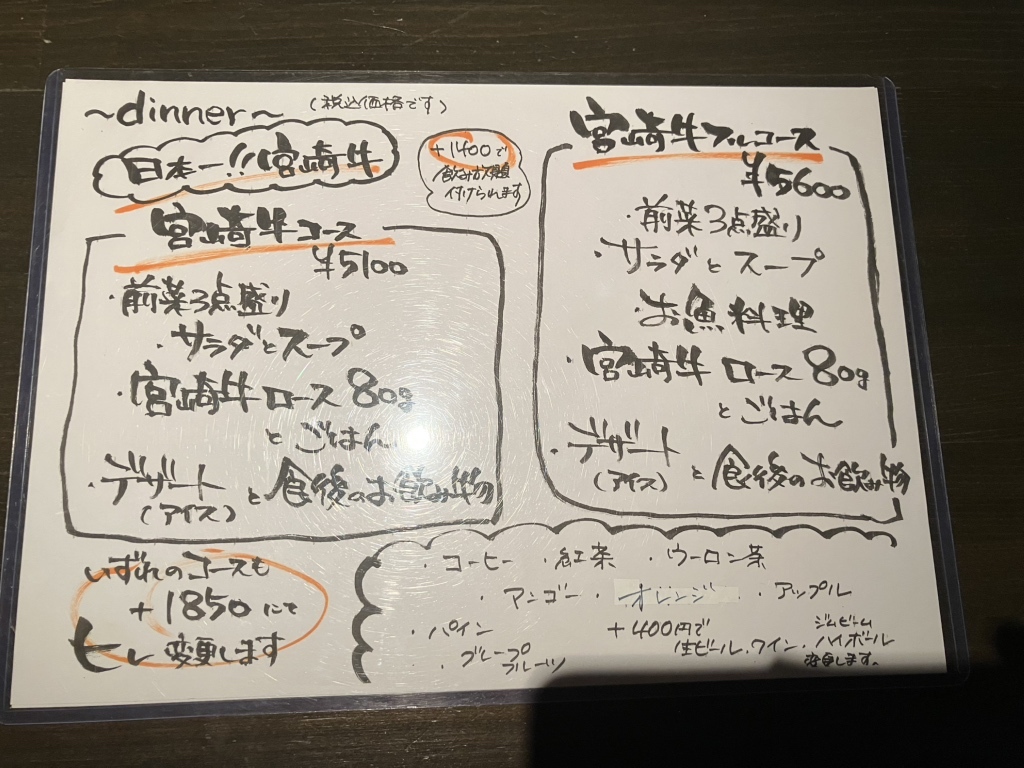 ~dinner~
(税込価格です)
日本一!!宮崎牛
+1400で
飲み放題
付けられます
宮崎牛コース
¥5100
・前菜3点盛り
・サラダとスープ
・宮崎牛ロース80g
とごはん
・デザートと食後のお飲み物
(アイス)
宮崎牛フルコース
¥5600
・前菜3点盛り
・サラダとスープ
お魚料理
・宮崎牛ロース80g
とごはん
・デザートと食後のお飲み物
(アイス)
いずれのコースも
+1850にて
ヒレ変更します
・コーヒー ・紅茶 ・ウーロン茶
・マンゴー ・オレンジ ・アップル
・パイン
・グレープ
フルーツ
+400円で
生ビール・ワイン・
ジムビーム
ハイボール
変更します。